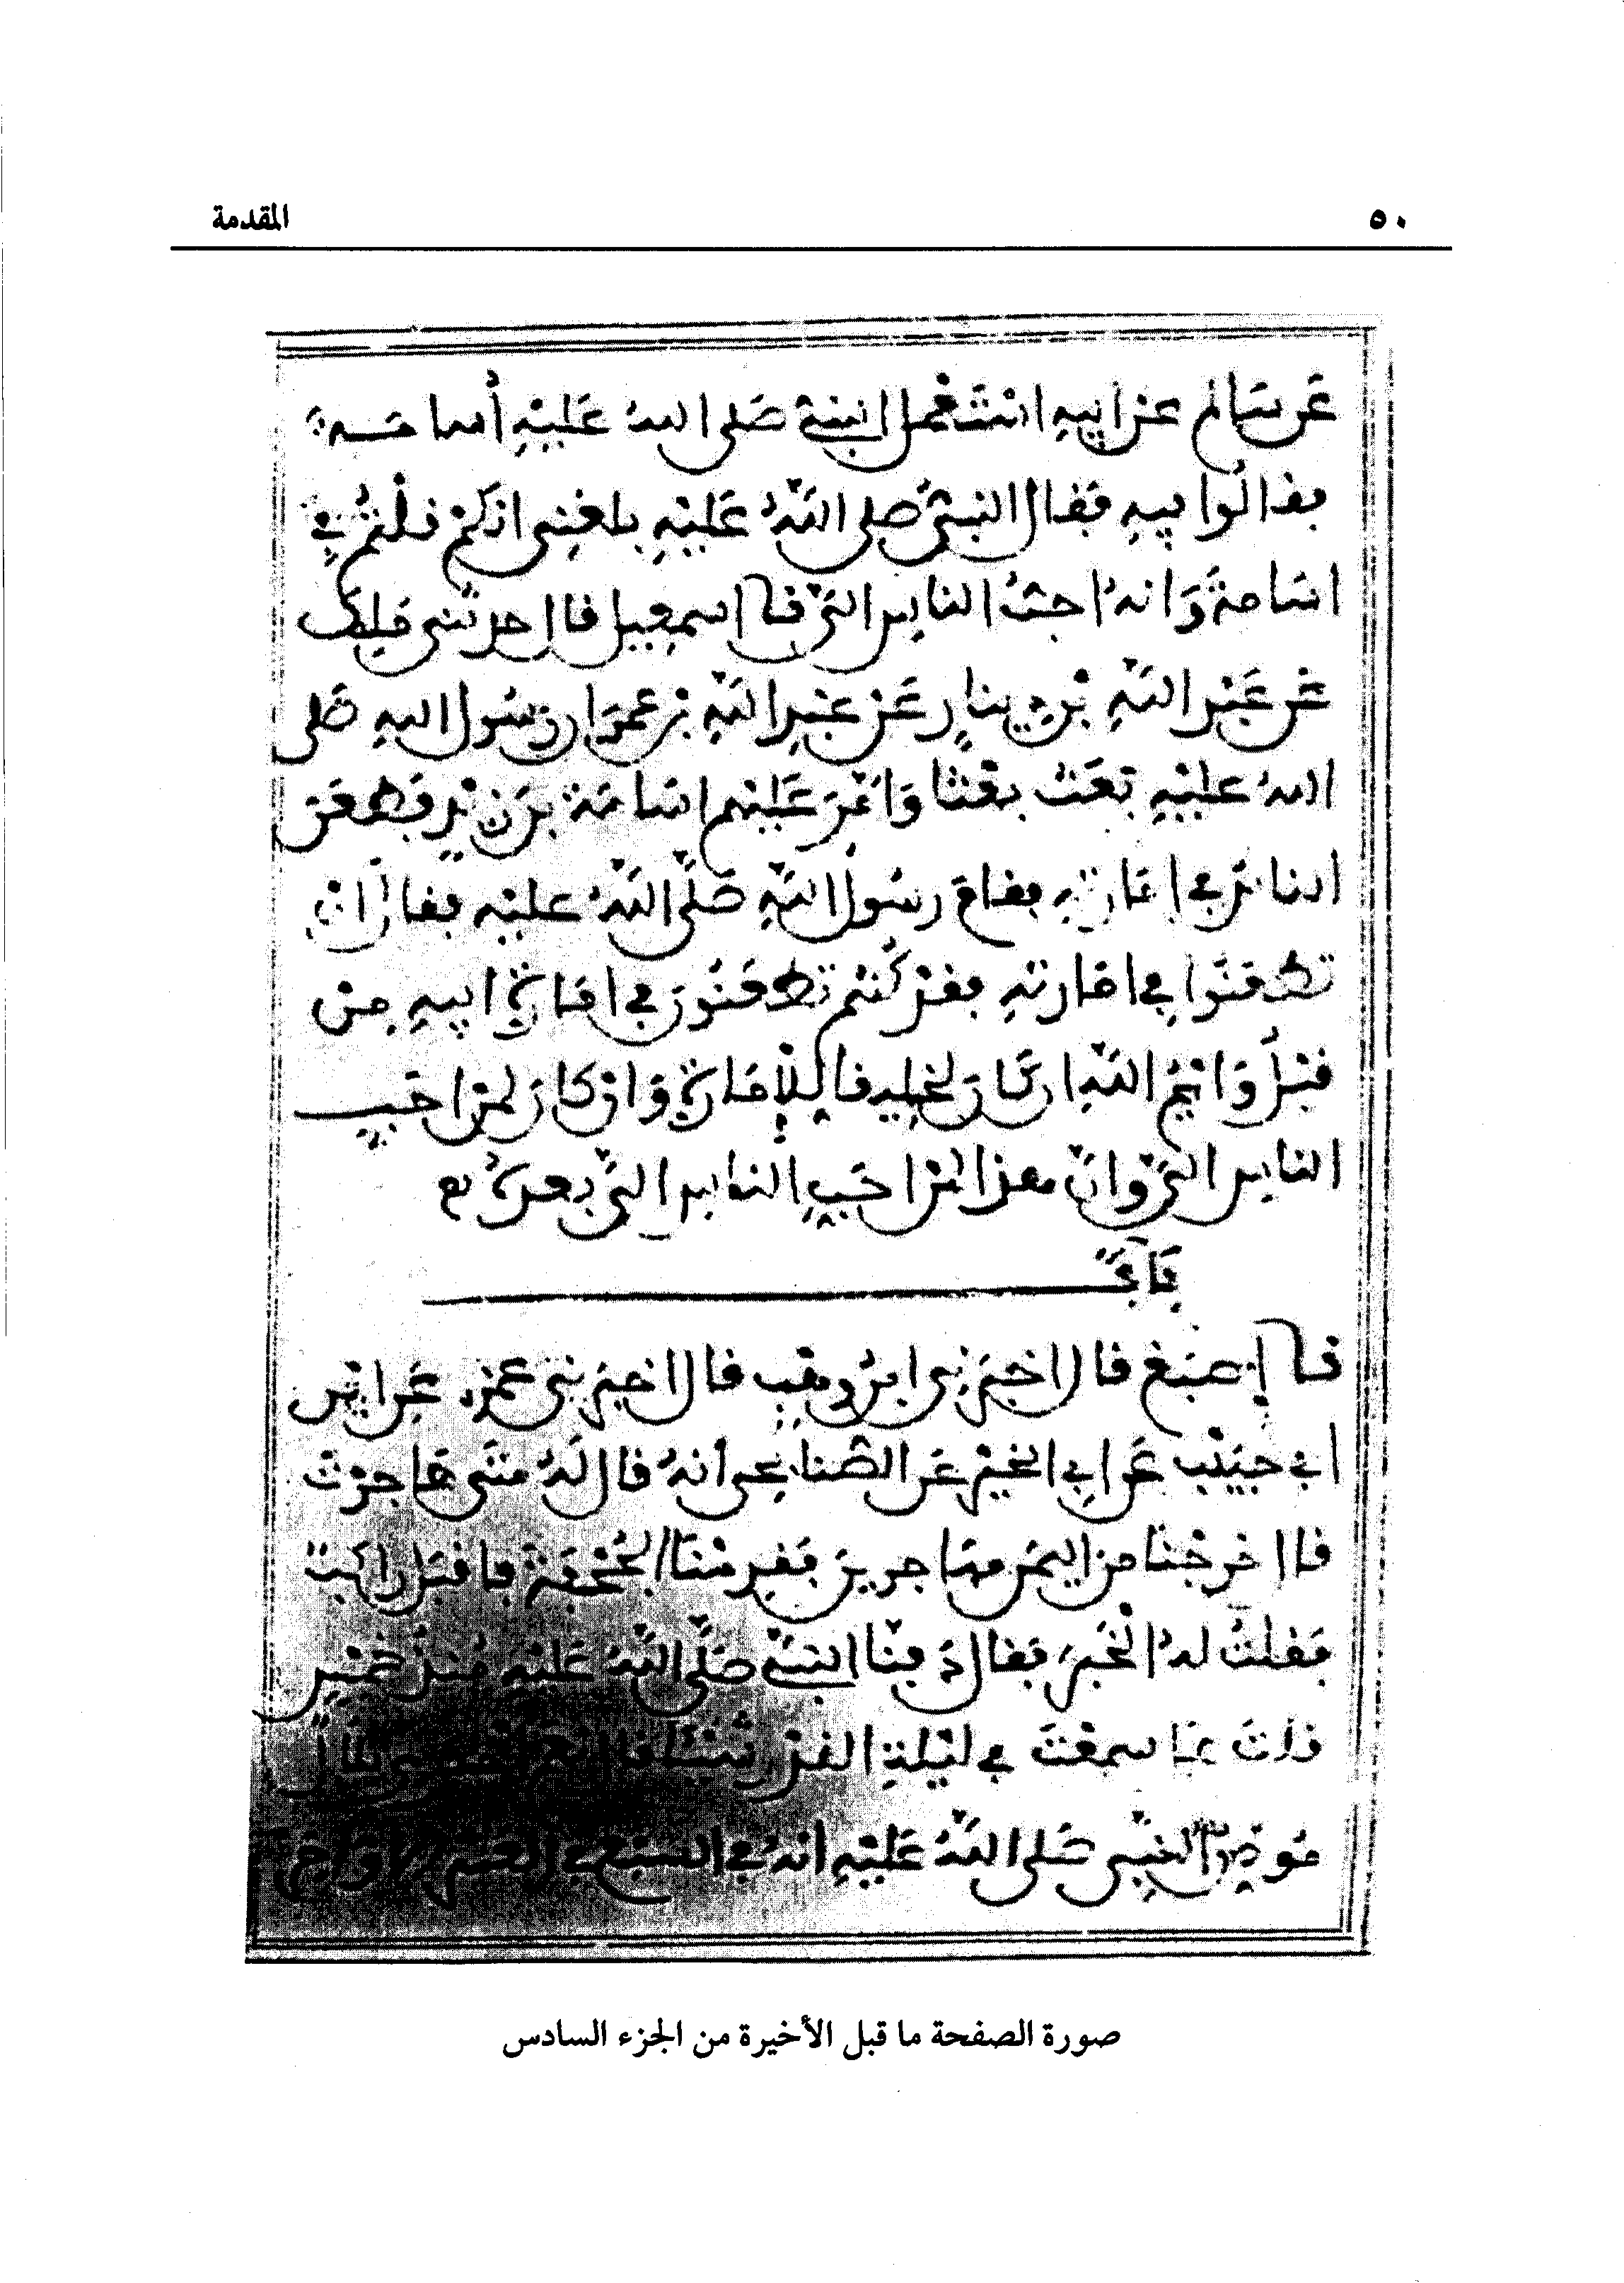 ٥٠
المقدمة
عن سالم عن ابيه استعمل النبي صلى الله عليه أسامة
فقالوا فيه فقال النبي صلى الله عليه بلغني انكم قلتم في
اسامة وانه احب الناس الي نا اسمعيل قال حدثني ملك
عن عبد الله بن دينار عن عبد الله بن عمر ان رسول الله صلى
الله عليه بعث بعثا وامر عليهم اسامة بن زيد فطعن
الناس في امارته فقام رسول الله صلى الله عليه فقال ان
تطعنوا في امارته فقد كنتم تطعنون في امارة ابيه من
قبل وايم الله ان كان لخليقا للامارة وان كان لمن احب
الناس الي وان هذا لمن احب الناس الي بعده
باب
نا إصبغ قال اخبرني ابن وهب قال اخبرني عمرو عن ابن
ابي حبيب عن ابي الخير عن الصنابحي أنه قال له متى هاجرت
قال خرجنا من اليمن مهاجرين فقدمنا الجحفة فاقبل راكب
فقلت له الخبر فقال دفنا النبي صلى الله عليه منذ خمس
قلت ما سمعت في ليلة القدر شيئا قال نعم بلال
موذن النبي صلى الله عليه أنه في السبع في العشر الاواخر
صورة الصفحة ما قبل الأخيرة من الجزء السادس